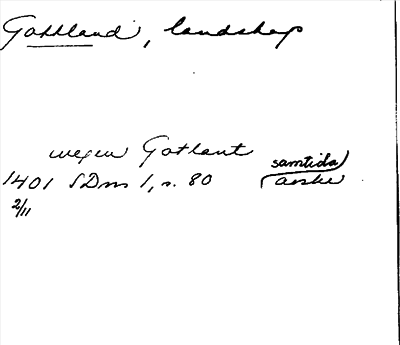 Gottland, landskap
wegen Gotlant
samtida
1401 SDns 1, s. 80 avskr
2/11